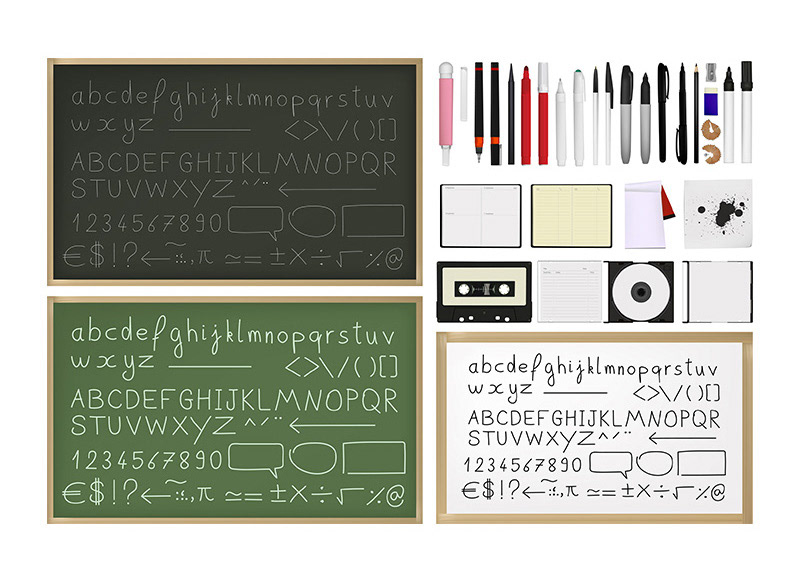 abcdefghijklmnopqrstuv
wxyz ______ <>\/()[]
ABCDEFGHIJKLMNOPQR
STUVWXYZ^´¨ ←
1234567890
€$!?←~:;.,π ≃= ±×÷√٪@
abcdefghijklmnopqrstuv
wxyz ______ <>\/()[]
ABCDEFGHIJKLMNOPQR
STUVWXYZ^´¨ ←
1234567890
€$!?←~:;.,π ≃= ±×÷√٪@
abcdefghijklmnopqrstuv
wxyz ______ <>\/()[]
ABCDEFGHIJKLMNOPQR
STUVWXYZ^´¨ ←
1234567890
€$!?←~:;.,π ≃= ±×÷√٪@